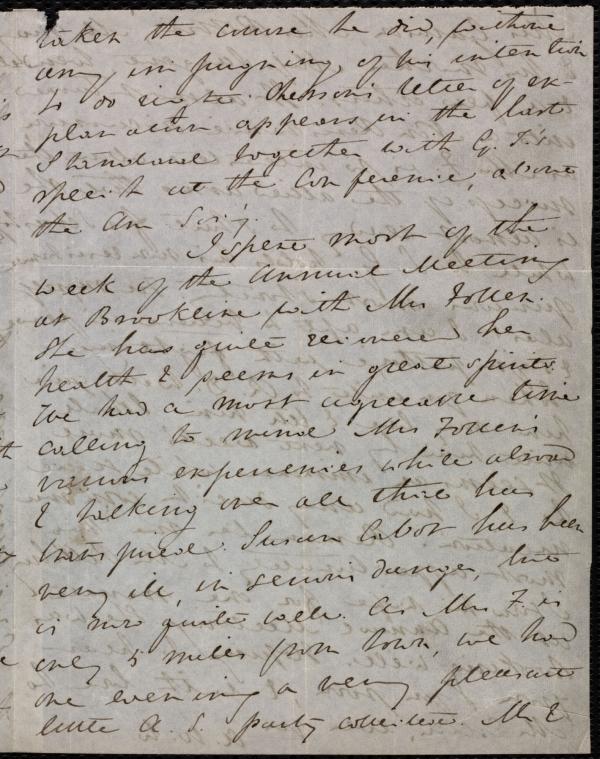 taken the course he did, without
any impugning of his intention
to do right. Chesson's letter of ex-
planation appears in the last
Standard together with G. T.'s
speech at the Conference, about
the Am Soc'y.
I spent most of the
week of the Annual Meeting
at Brookline with Mrs Follen.
She has quite recovered her
health & seems in great spirits.
We had a most agreeable time
calling to mind Mrs Follen's
various experiences while abroad
& talking over all that has
transpired. Susan Cabot has been
very ill, in serious danger, but
is now quite well. As Mrs F. is
only 5 miles from town, we had
one evening a very pleasant
little A. S. party collected. Mr &